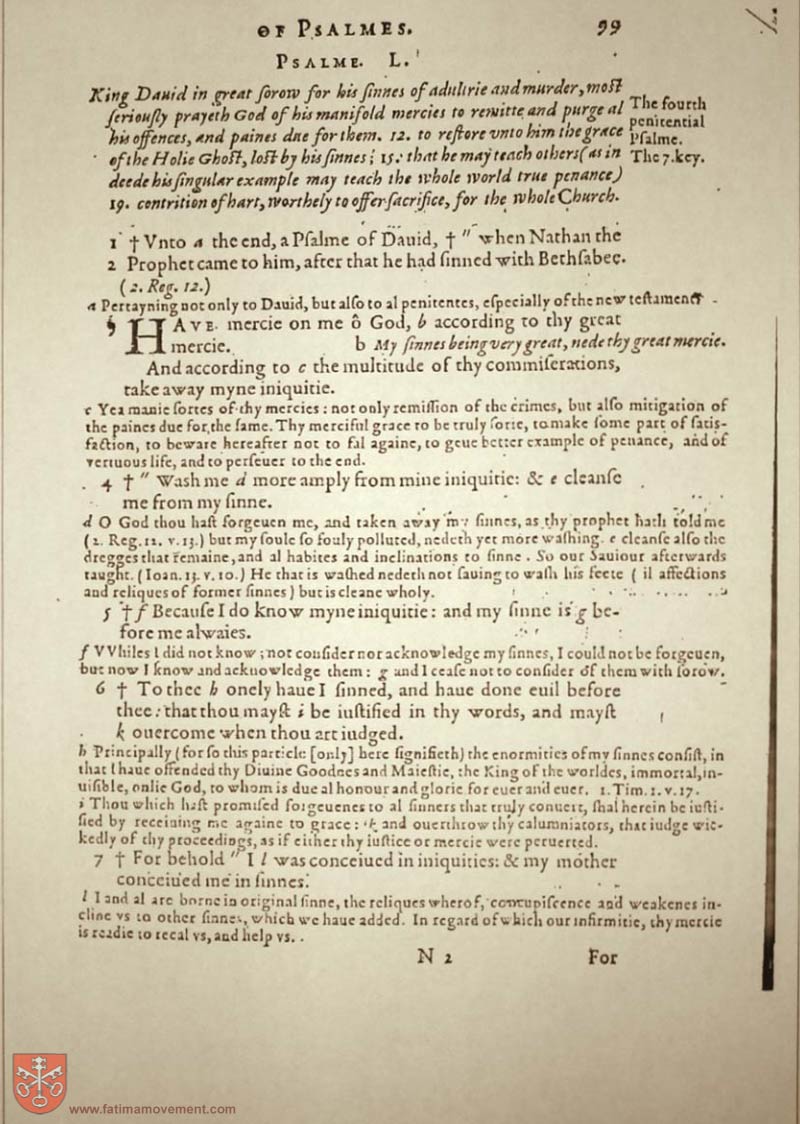 OF PSALMES. 99
PSALME. L.
King Dauid in great sorow for his sinnes of adultrie and murder, most
seriously prayeth God of his manifold mercies to remitte and purge al
his offences, and paines due for them. 12. to restore vnto him the grace
of the Holie Ghost, lost by his sinnes; 15. that he may teach others (as in
deede his singular example may teach the whole world true penance)
19. contrition of hart, worthely to offer sacrifice, for the whole Church.
The fourth
penitential
Psalme.
The 7. key.
1 † Vnto a the end, a Psalme of Dauid, † " when Nathan the
2 Prophet came to him, after that he had sinned with Bethsabee.
(2. Reg. 12.)
a Pertayning not only to Dauid, but also to al penitentes, especially of the new testament
3 HAVE mercie on me ô God, b according to thy great
mercie. b My sinnes being very great, nede thy great mercie.
And according to c the multitude of thy commiserations,
take away myne iniquitie.
c Yea manie sortes of thy mercies: not only remission of the crimes, but also mitigation of
the paines due for the same. Thy merciful grace to be truly sorie, to make some part of satis-
faction, to beware hereafter not to fal againe, to geue better example of penance, and of
vertuous life, and to perseuer to the end.
4 † " Wash me d more amply from mine iniquitie: & e cleanse
me from my sinne.
d O God thou hast forgeuen me, and taken away my sinnes, as thy prophet hath told me
(2. Reg. 12. v. 13.) but my soule so fouly polluted, nedeth yet more washing. e cleanse also the
dregges that remaine, and al habites and inclinations to sinne. So our Sauiour afterwards
taught. (Ioan. 13. v. 10.) He that is washed nedeth not sauing to wash his feete ( il affections
and reliques of former sinnes) but is cleane wholy.
5 † f Because I do know myne iniquitie: and my sinne is g be-
fore me alwaies.
f VVhiles I did not know; not consider nor acknowledge my sinnes, I could not be forgeuen,
but now I know and acknowledge them: g and I cease not to consider of them with sorow.
6 † To thee h onely haue I sinned, and haue done euil before
thee: that thou mayst i be iustified in thy words, and mayst
k ouercome when thou art iudged.
h Principally (for so this particle [only] here signifieth) the enormities of my sinnes consist, in
that I haue offended thy Diuine Goodnes and Maiestie, the King of the worldes, immortal, in-
uisible, onlie God, to whom is due al honour and glorie for euer and euer. 1. Tim. 1. v. 17.
i Thou which hast promised forgeuenes to al sinners that truly conuert, shal herein be iusti-
fied by receiuing me againe to grace: k and ouerthrow thy calumniators, that iudge wic-
kedly of thy proceedings, as if either thy iustice or mercie were peruerted.
7 † For behold " I l was conceiued in iniquities: & my mother
conceiued me in sinnes.
l I and al are borne in original sinne, the reliques wherof, concupiscence and weakenes in-
cline vs to other sinnes, which we haue added. In regard of which our infirmitie, thy mercie
is readie to recal vs, and help vs.
N 2 For
www.fatimamovement.com